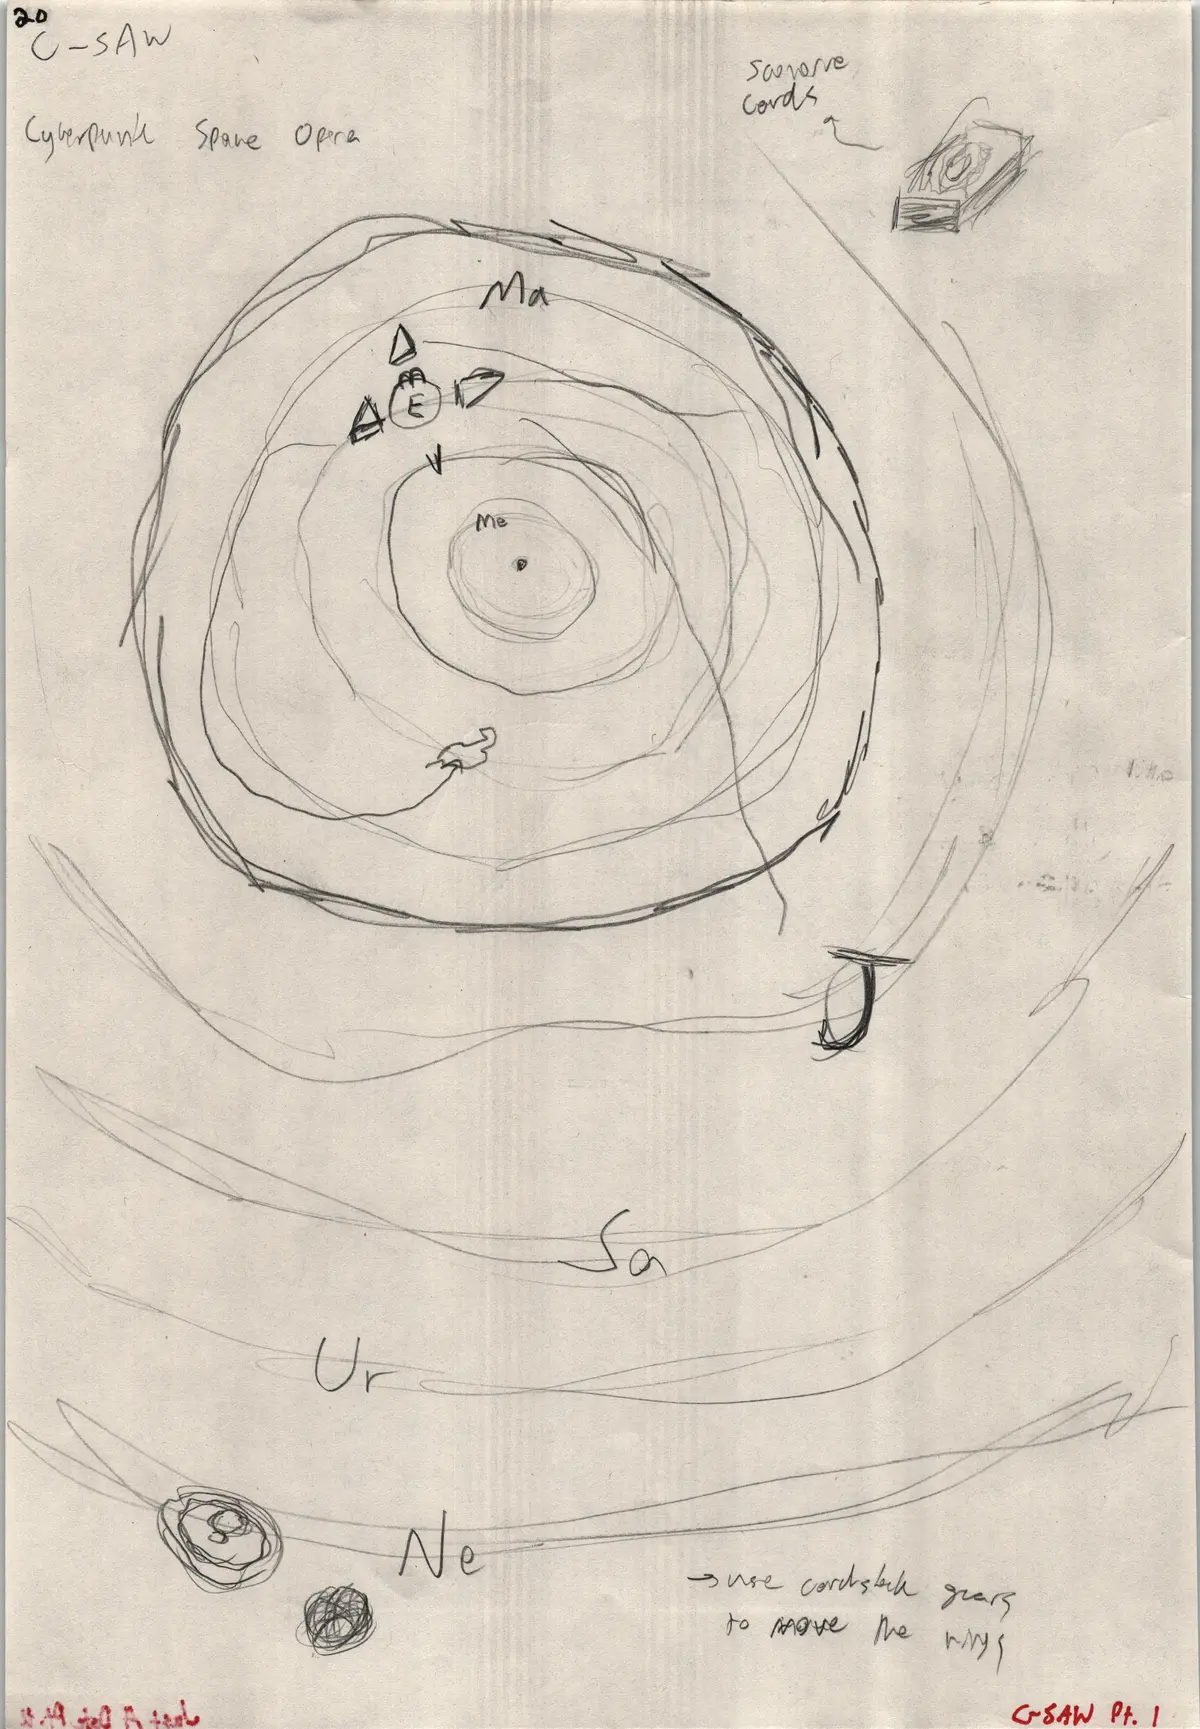 20
C-SAW
Cyberpunk Space Opera
Square
cards
Ma
E
V
Me
J
Sa
Ur
Ne
→ use cardstock gears
to move the rings
C-SAW Pt. 1
Just A Dot Pt.